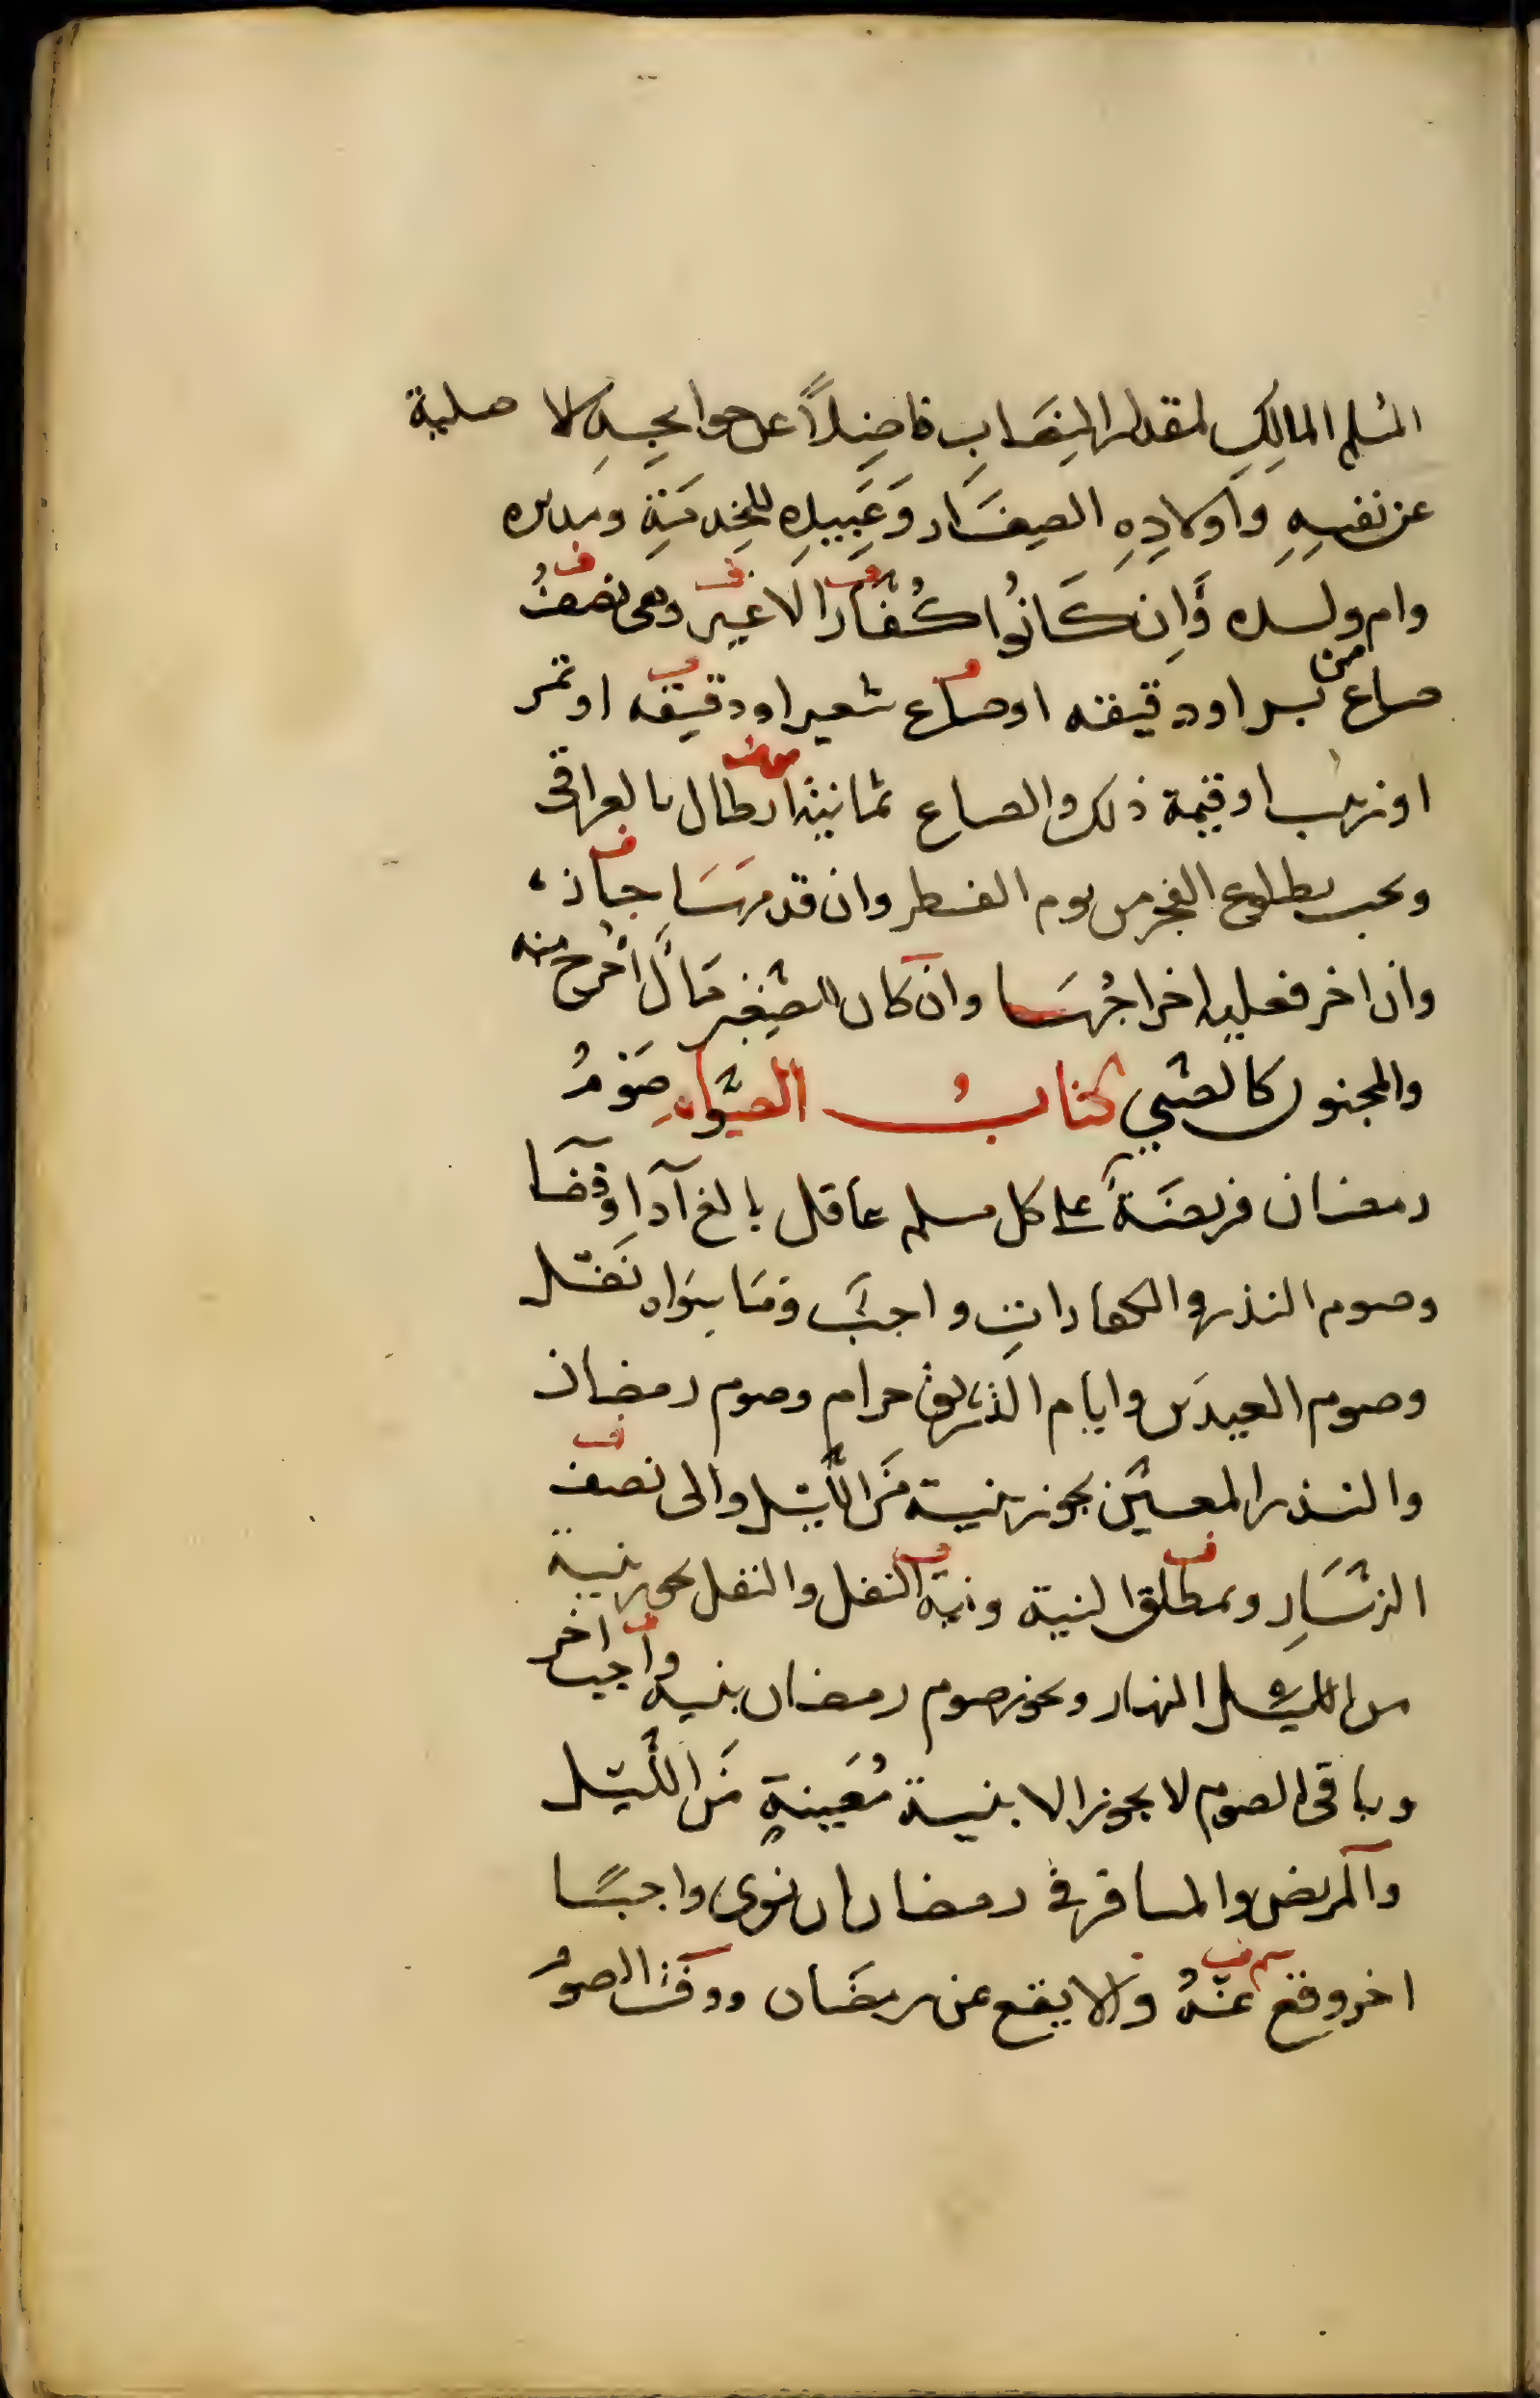 المسلم المالك لمقدار النِصَابِ فاضِلاً عن حوايجِهِ الاصلية
عن نفسِهِ وَأولادِهِ الصِغَار وَعَبِيدِهِ للخِدمَةِ ومدبره
وام ولده وَإِن كَانُوا كُفّارًا لا غير وهى نصفُ
صاع من بر او دقيقه او صاع شعير او دقيقه او تمر
او زبيب او قيمة ذلك والصاع ثمانية ارطال بالعراقى
وتجب بطلوع الفجر من يوم الفطر وان قدمهَا جاز
وان اخر فعليه اخراجُهَا وان كان للصّغير مَالٌ أُخرج منه
والمجنون كالصّبي كتابُ الصّوم صَوْمُ
رمضان فريضَةٌ على كل مسلم عاقل بالغ آدا وقضا
وصوم النذر والكفاراتِ واجبٌ وَمَا سِوَاه نَفْل
وصوم العيدَين وايام التشريق حرام وصوم رمضان
والنذر المعيّن يجوز بنية مَن اللّيْل والى نصف
النهَارِ وبمطلق النية ونية النفل والنفل يجوز بنية
من الليل والنهار ويجوز صوم رمضان بنية واجب اخر
وباقى الصوم لا يجوز الا بنية مُعَينةٍ مَن اللّيْل
والمريض والمسافر فى رمضان ان نوى واجبًا
اخر وقع عنهُ والا يقع عن رمضَان ووقت الصومُ